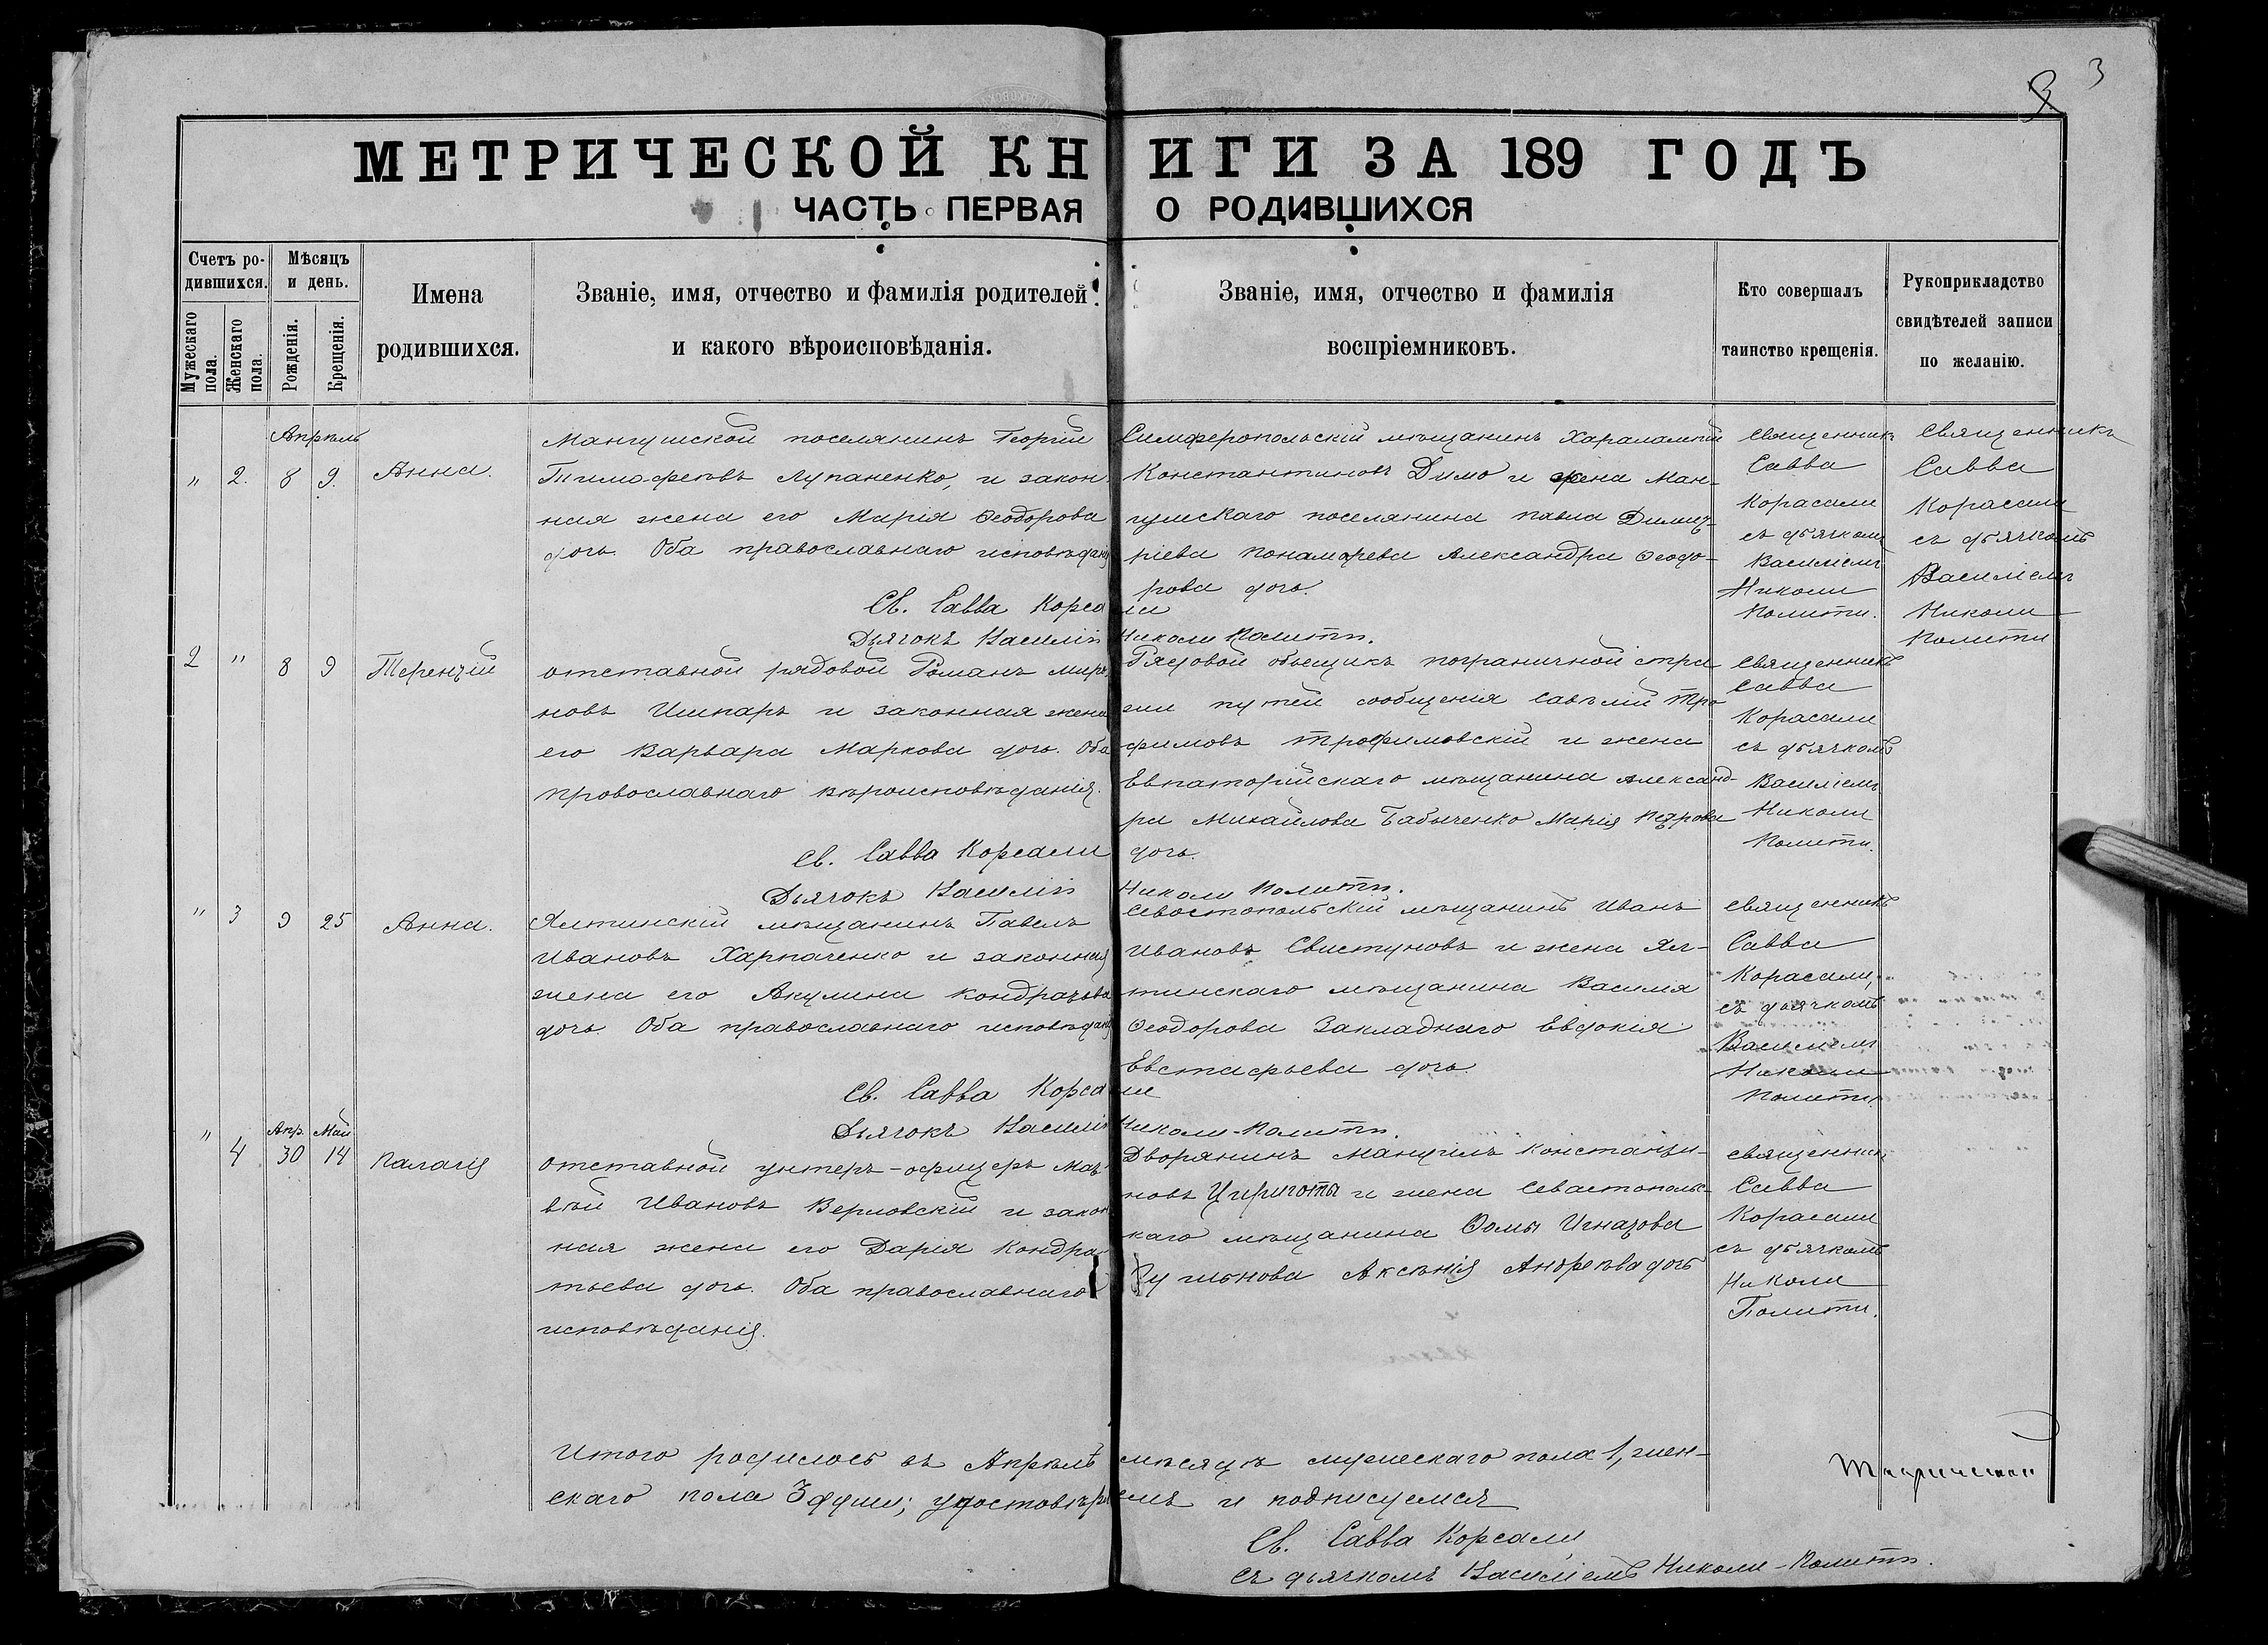 3
МЕТРИЧЕСКОЙ КНИГИ ЗА 189 ГОДЪ
ЧАСТЬ ПЕРВАЯ О РОДИВШИХСЯ
Счетъ ро-
дившихся.
Мужескаго
пола.
Женскаго
пола.
Мѣсяцъ
и день.
Рожденія.
Крещенія.
Имена
родившихся.
Званіе, имя, отчество и фамилія родителей
и какого вѣроисповѣданія.
Званіе, имя, отчество и фамилія
воспріемниковъ.
Кто совершалъ
таинство крещенія.
Рукоприкладство
свидѣтелей записи
по желанію.
Апрѣль
" 2. 8 9. Анна.
Мангушской поселянинъ Георгій
Тимофеевъ Лупаненко, и закон-
ная жена его Марія Ѳеодорова
дочь. Оба православнаго исповѣданія
Симферопольскій мѣщанинъ Харалампій
Константиновъ Димо и жена Ман-
гушскаго поселянина Павла Димит-
ріева Понамарева Александра Ѳеодо-
рова дочь.
Священникъ
Савва
Корасали
съ дьячкомъ
Василіемъ
Николи
Полити.
Священникъ
Савва
Корасали
съ дьячкомъ
Василіемъ
Николи
Полити
Св. Савва Корсали
Дьячокъ Василій Николи Полити.
2 " 8 9 Терентій
отставной рядовой Романъ Миро-
новъ Шпаръ и законная жена
его Варвара Маркова дочь. Оба
провославнаго вѣроисповѣданія.
Рядовой объещикъ пограничной стра
жи путей сообщенія Савѣлій Тро
фимовъ Трофимовскій и жена
Евпаторійскаго мѣщанина Александ-
ра Михайлова Бабыченко Марія Петрова
дочь.
Священникъ
Савва
Корасали
съ дьячкомъ
Василіемъ
Николи
Полити.
Св. Савва Корсали
Дьячокъ Василій Николи Полити.
" 3 9 25 Анна.
Ялтинскій мѣщанинъ Павелъ
Ивановъ Харпаченко и законная
жена его Акулина Кондратова
дочь. Оба православнаго исповѣдан
Севостопольскій мѣщанинъ Иванъ
Ивановъ Свистуновъ и жена Ял-
тинскаго мѣщанина Василя
Ѳеодорова Закладнаго Евдокія
Евстафьева дочь.
Священникъ
Савва
Корасали,
съ дьячкомъ
Василіемъ
Николи
Полити.
Св. Савва Корсали
Дьячокъ Василій Николи-Полити.
Апр. Май
" 4 30 14 Палагія
отставной унтеръ-офицеръ Мат-
вѣй Ивановъ Верловскій и закон
ная жена его Дарія Кондра-
тьева дочь. Оба православнаго
исповѣданія.
Дворянинъ Мануилъ Константи-
новъ Цириготы и жена Севастопольс-
каго мѣщанина Ѳомы Игнатова
Аксѣнія Андреева дочь
Священникъ
Савва
Корасали
съ дьячкомъ
Николи
Полити.
Итого родилось въ Апрѣлѣ мѣсяцѣ мужескаго пола 1, жен-
скаго пола 3 души; удостовѣряемъ и подписуемся
Св. Савва Корсали
съ дьячкомъ Василіемъ Николи-Полити.